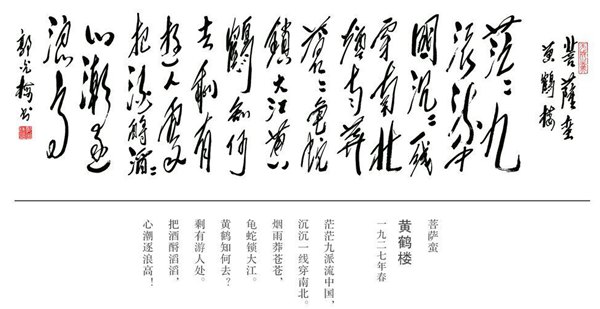 菩薩蛮
黄鶴楼
茫〻九
派流中
國沉〻一线
穿南北
烟雨莽
苍〻龟蛇
锁大江黄
鶴知何
去剩有
游人處
把酒酹滔〻
心潮逐
浪高
菩萨蛮
黄鹤楼
一九二七年春
茫茫九派流中国，
沉沉一线穿南北。
烟雨莽苍苍，
龟蛇锁大江。
黄鹤知何去？
剩有游人处。
把酒酹滔滔，
心潮逐浪高！